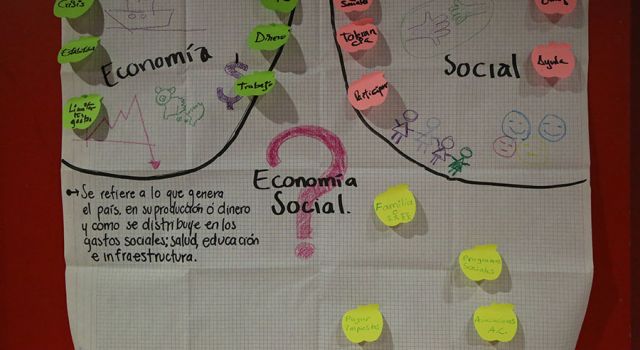 Crisis
Economía
Dinero
Trabajo
Social
Participar
Ayuda
Economía
Social.
Se refiere a lo que genera
el país, en su producción ó dinero
y como se distribuye en los
gastos sociales; salud, educación
e infraestructura.
Familia
Programas
Sociales
Pagar
Impuestos
Asociaciones
A.C.